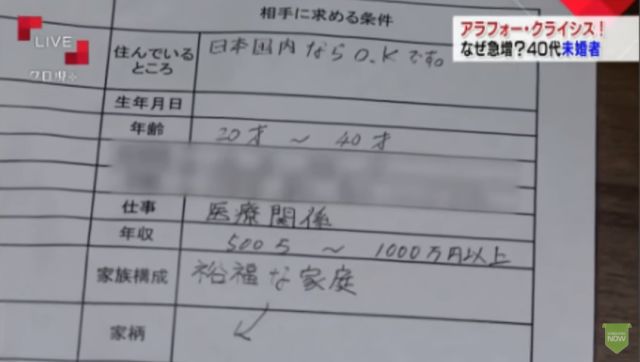 相手に求める条件
LIVE
クロ現+
アラフォー・クライシス!
なぜ急増?40代未婚者
住んでいるところ
日本国内ならO.Kです。
生年月日
年齢
20才 ~ 40才
仕事
医療関係
年収
500万 ~ 1000万円以上
家族構成
裕福な家庭
家柄
↙
NOW